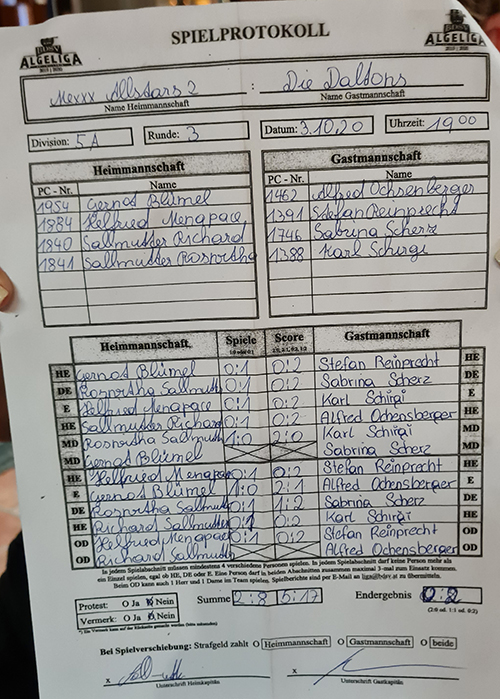 ALGELIGA
SPIELPROTOKOLL
ALGELIGA
Mexxx Allstars 2 : Die Daltons
Name Heimmannschaft Name Gastmannschaft
Division: 5A Runde: 3 Datum: 3.10.20 Uhrzeit: 19 00
Heimmannschaft Gastmannschaft
PC - Nr. Name PC - Nr. Name
1954 Gernot Blümel 1462 Alfred Ochsenberger
1884 Helfried Mengapace 1391 Stefan Reinprecht
1840 Sallmutter Richard 1746 Sabrina Scherz
1841 Sallmutter Rosvitha 1388 Karl Schirgi
Heimmannschaft Spiele Score Gastmannschaft
HE Gernot Blümel 0:1 0:2 Stefan Reinprecht HE
DE Rosvitha Sallmutt 0:1 0:2 Sabrina Scherz DE
E Helfried Mengapace 0:1 0:2 Karl Schirgi E
HE Sallmutter Richard 0:1 0:2 Alfred Ochensberger HE
MD Rosvitha Sallmutt 1:0 2:0 Karl Schirgi MD
MD Gernot Blümel Sabrina Scherz MD
HE Helfried Mengapac 0:1 0:2 Stefan Reinprecht HE
E Gernot Blümel 1:0 2:1 Alfred Ochensberger E
DE Rosvitha Sallmutt 0:1 1:2 Sabrina Scherz DE
HE Richard Sallmutter 0:1 0:2 Karl Schirgi HE
OD Helfried Mengapace 0:1 0:2 Stefan Reinprecht OD
OD Richard Sallmutt Alfred Ochensberger OD
In jedem Spielabschnitt müssen mindestens 4 verschiedene Personen spielen. In jedem Spielabschnitt darf keine Person mehr als
ein Einzel spielen, egal ob HE, DE oder E. Eine Person darf in beiden Abschnitten zusammen maximal 3-mal zum Einsatz kommen.
Beim OD kann auch 1 Herr und 1 Dame im Team spielen. Spielberichte sind per E-Mail an liga@bdsv.at zu übermitteln.
Protest: O Ja O Nein Summe 2:8 5:17 Endergebnis 0:2
Vermerk: O Ja O Nein (2:0 od. 1:1 od. 0:2)
Bei Spielverschiebung: Strafgeld zahlt O Heimmannschaft O Gastmannschaft O beide
x x
Unterschrift Heimkapitän Unterschrift Gastkapitän